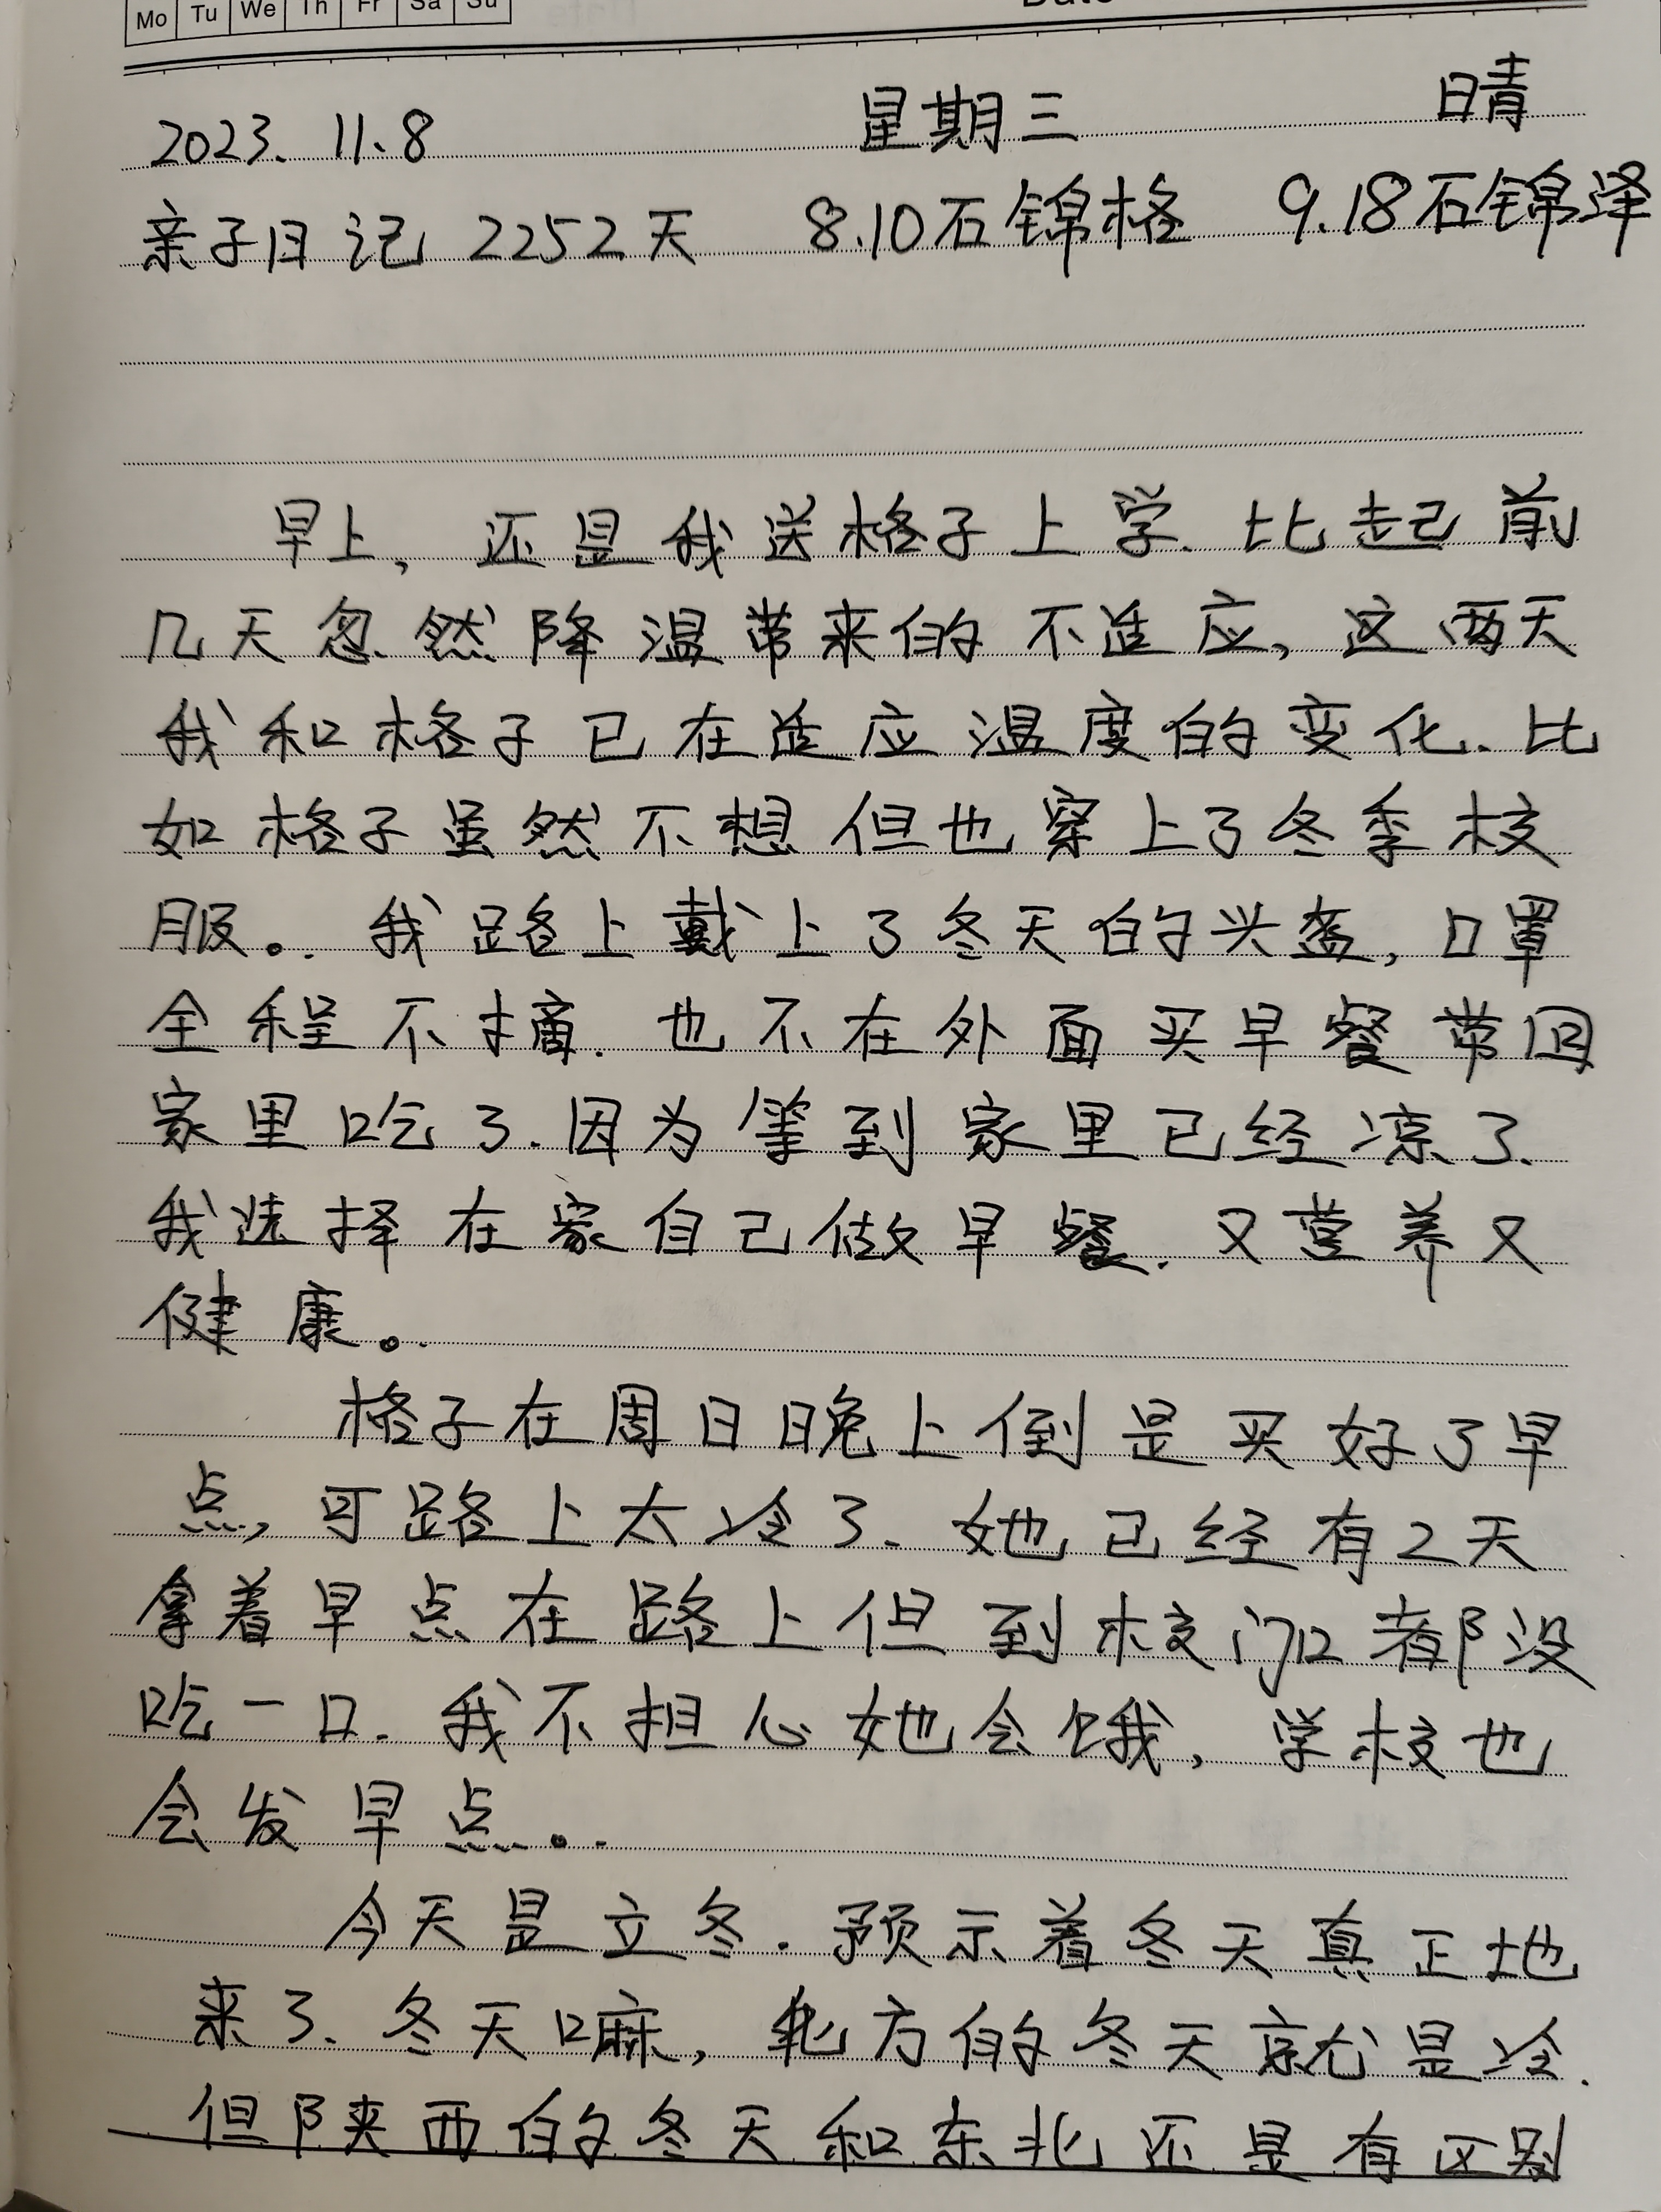 Mo Tu We Th Fr Sa Su
Date
2023. 11.8 星期三 晴
亲子日记 2252天 8.10石锦格 9.18石锦泽
早上，还是我送格子上学. 比起前
几天忽然降温带来的不适应，这两天
我和格子已在适应温度的变化. 比
如格子虽然不想但也穿上了冬季校
服。我路上戴上了冬天的头盔，口罩
全程不摘. 也不在外面买早餐带回
家里吃了. 因为等到家里已经凉了.
我选择在家自己做早餐. 又营养又
健康。
格子在周日晚上倒是买好了早
点，可路上太冷了. 她已经有2天
拿着早点在路上但到校门口都没
吃一口. 我不担心她会饿，学校也
会发早点。
今天是立冬. 预示着冬天真正地
来了. 冬天嘛，北方的冬天就是冷.
但陕西的冬天和东北还是有区别